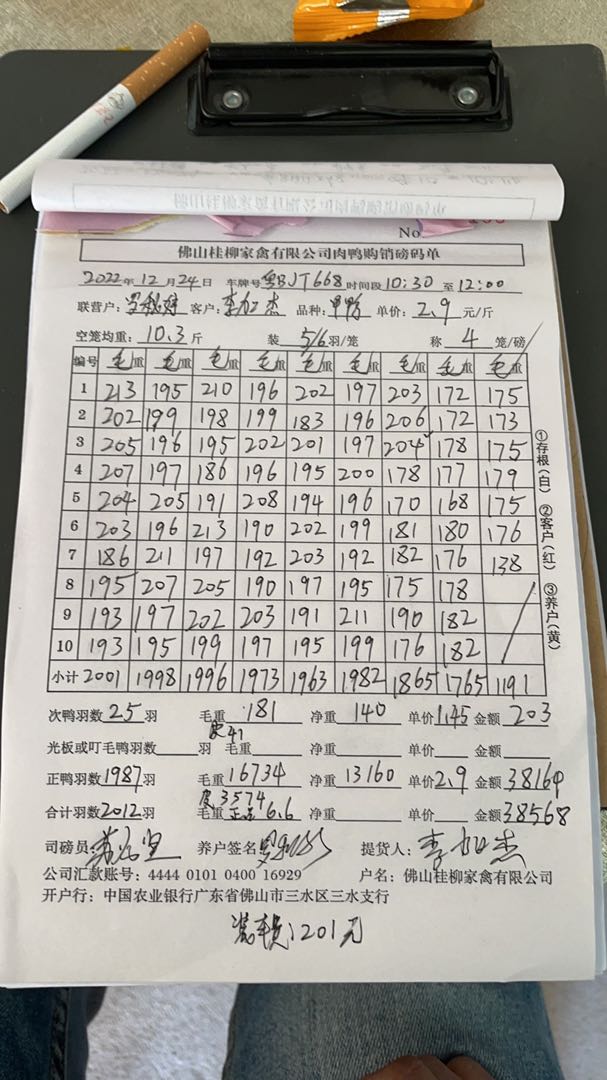 No.
佛山桂柳家禽有限公司肉鸭购销磅码单
2022年12月24日 车牌号粤BJT668 时间段10:30至12:00
联营户: 客户: 李 杰 品种: 单价: 2.9 元/斤
空笼均重: 10.3 斤 装 5/6 羽/笼 称 4 笼/磅
编号 毛重 毛重 毛重 毛重 毛重 毛重 毛重 毛重 毛重
1 213 195 210 196 202 197 203 172 175
2 202 199 198 199 183 196 206 172 173
3 205 196 195 202 201 197 204 178 175
4 207 197 186 196 195 200 178 177 179
5 204 205 191 208 194 196 170 168 175
6 203 196 213 190 202 199 181 180 176
7 186 211 197 192 203 192 182 176 138
8 195 207 205 190 197 195 175 178
9 193 197 202 203 191 211 190 182
10 193 195 199 197 195 199 176 182
小计 2001 1998 1996 1973 1963 1982 1865 1765 1191
①存根(白) ②客户(红) ③养户(黄)
次鸭羽数 25 羽 毛重 181 净重 140 单价 1.45 金额 203
皮41
光板或叮毛鸭羽数 羽 毛重 净重 单价 金额
正鸭羽数 1987 羽 毛重 16734 净重 13160 单价 2.9 金额 38164
皮3574
合计羽数 2012 羽 毛重 6.6 净重 单价 金额 38568
司磅员: 养户签名: 提货人: 李 杰
公司汇款账号: 4444 0101 0400 16929 户名: 佛山桂柳家禽有限公司
开户行: 中国农业银行广东省佛山市三水区三水支行
装车费:201元